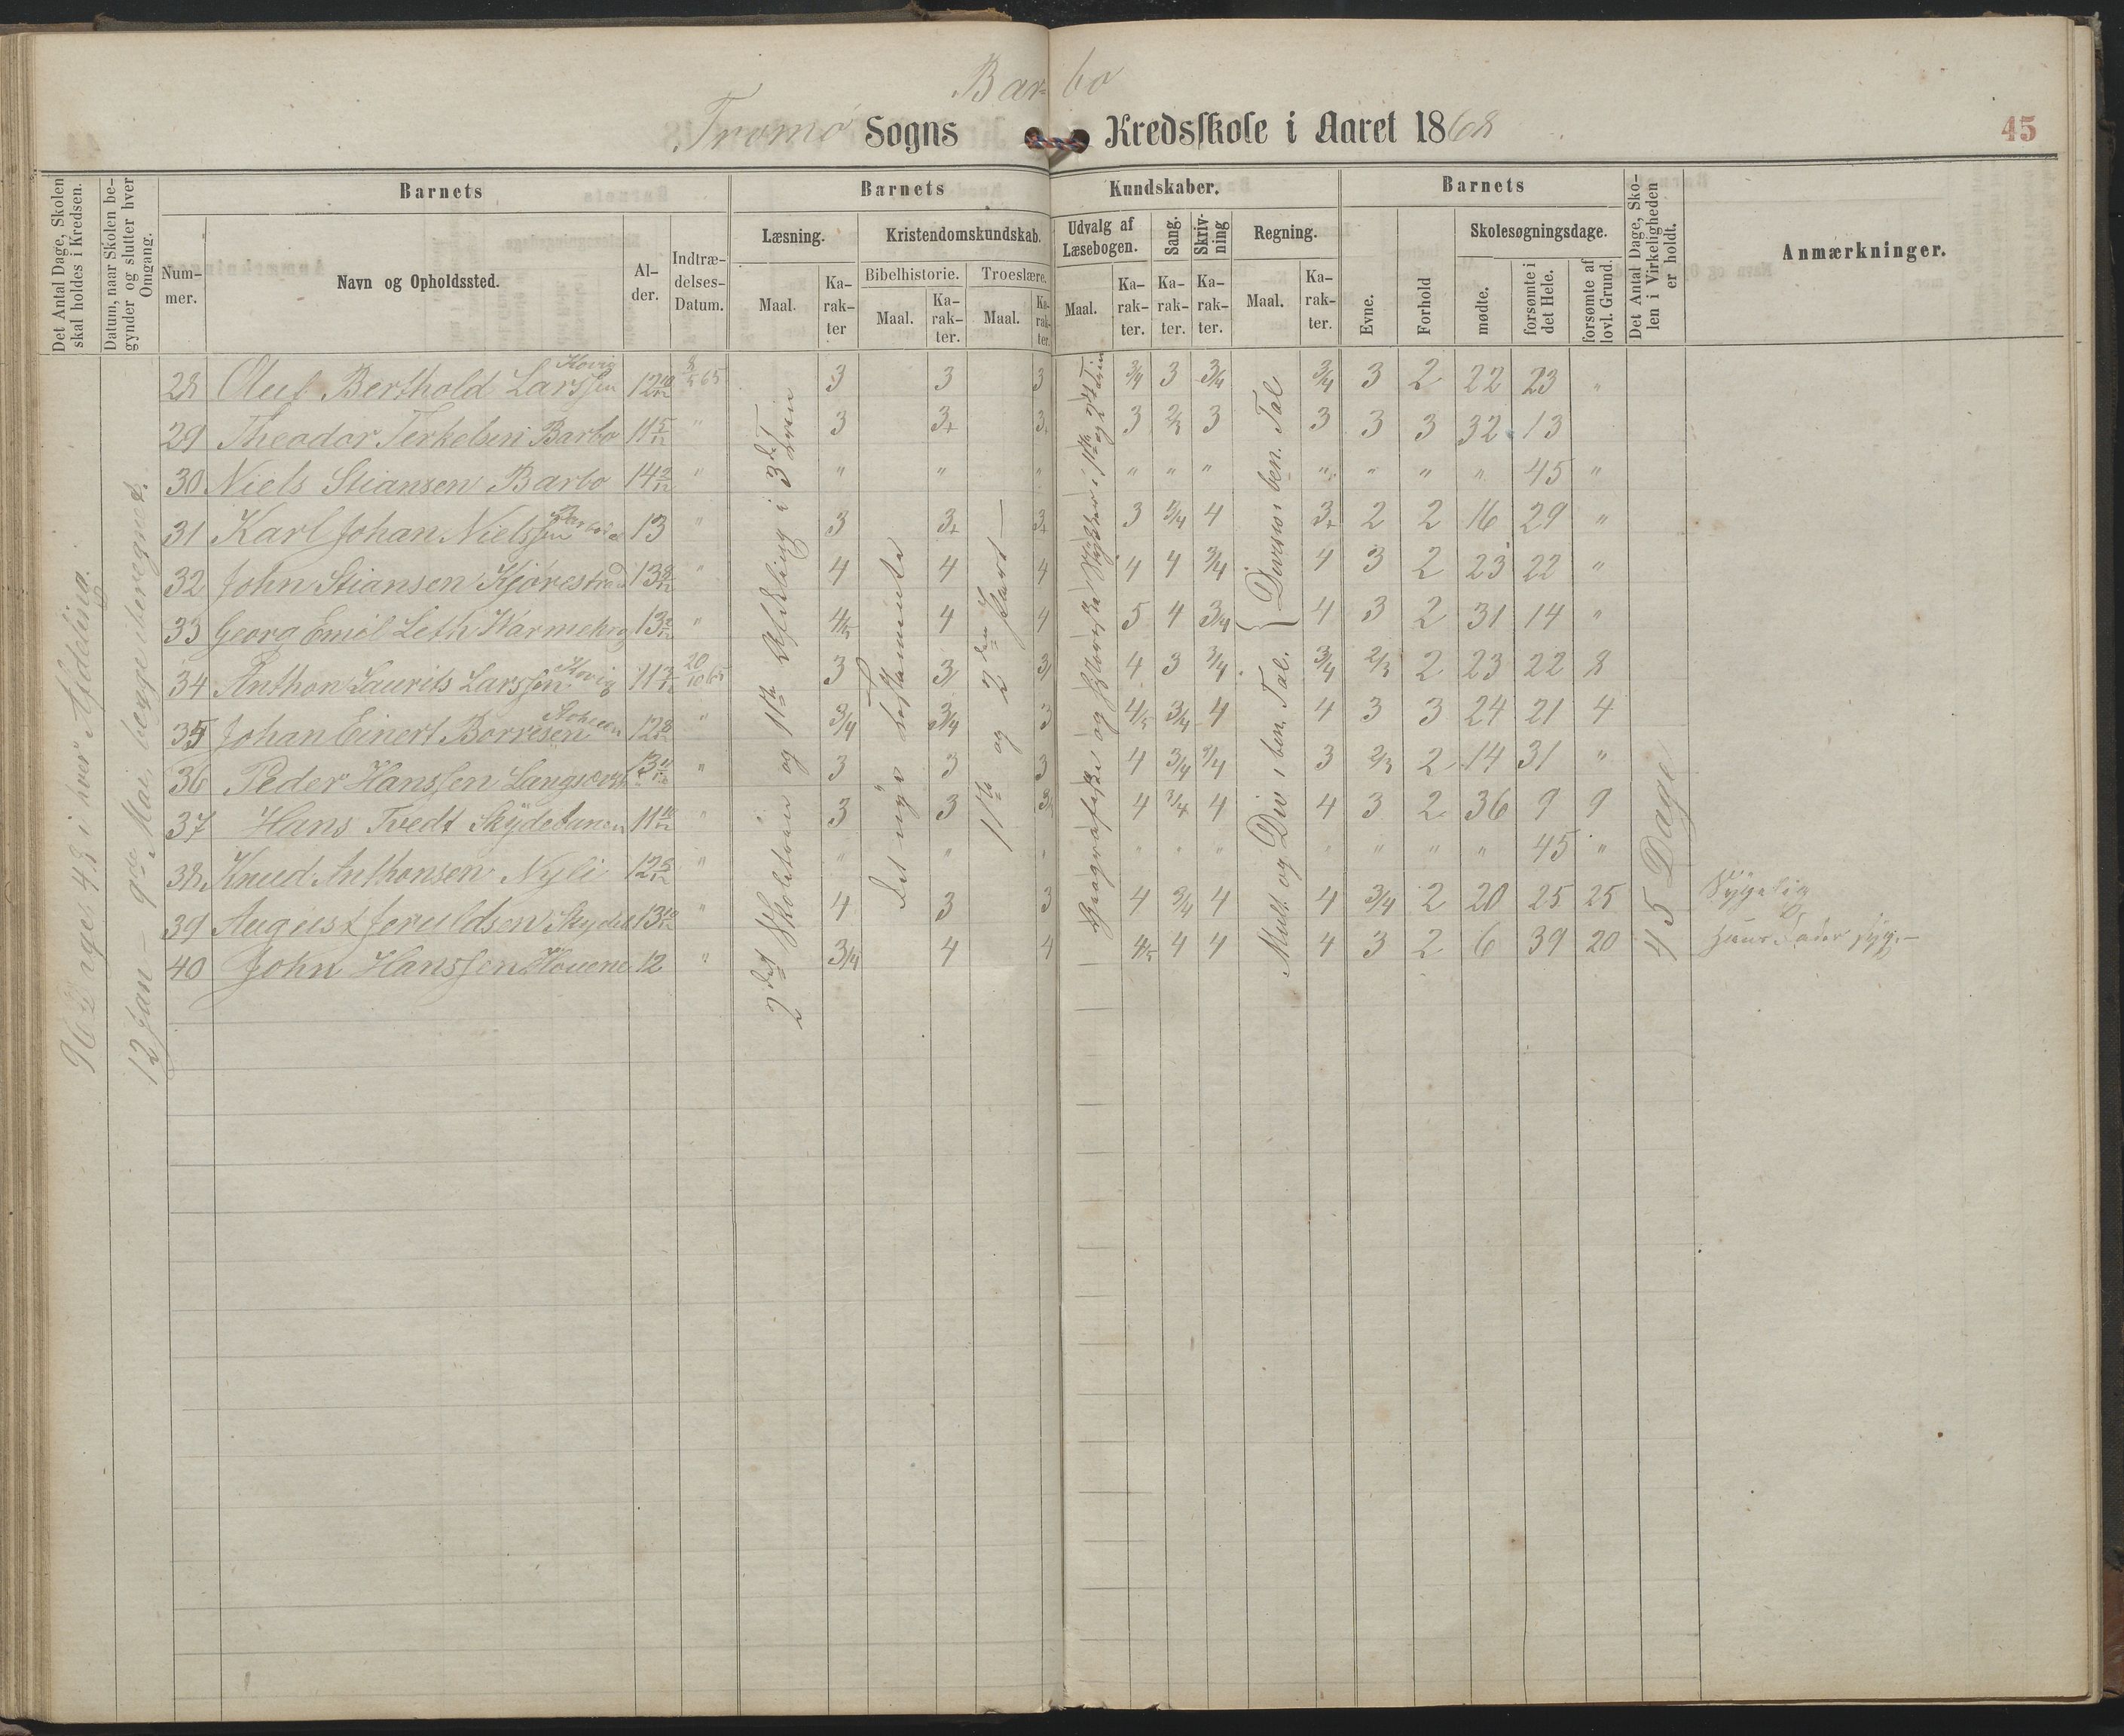 Barbo
Tromø Sogns Kredsskole i Aaret 1868
45
Det Antal Dage, Skolen skal holdes i Kredsen.
Datum, naar Skolen begynder og slutter hver Omgang.
Barnets
Barnets
Kundskaber.
Barnets
Det Antal Dage, Skolen i Virkeligheden er holdt.
Anmærkninger.
Nummer.
Navn og Opholdssted.
Alder.
Indtrædelses-Datum.
Læsning.
Kristendomskundskab.
Udvalg af Læsebogen.
Sang.
Skrivning
Regning.
Evne.
Forhold
Skolesøgningsdage.
Bibelhistorie.
Troeslære.
Maal.
Karakter
Maal.
Karakter.
Maal.
Karakter.
Maal.
Karakter.
Karakter.
Karakter.
Maal.
Karakter.
mødte.
forsømte i det Hele.
forsømte af lovl. Grund.
96 Dage, 48 i hver Afdeling.
12 Jan – 9de Mai, begge iberegnet.
2det Skoletrin og 1ste Afdeling i 3det Trin
Det nye Testamente
1ste og 2den Part
Geografiske og Historiske Stykker i 1ste og 2det Trin
Mult. og Div i ben. Tal. } Divison i ben. Tal
45 Dage
28 Oluf Berthold Larssen Hovig 12 10/12 8/5 65 3 3 3 3/4 3 3/4 3/4 3 2 22 23 "
29 Theodor Terkelsen Barbo 11 5/12 " 3 3+ 3+ 3 2/3 3 3 3 3 32 13
30 Niels Stiansen Barbo 14 2/12 " " " " " " " " " " " 45 "
31 Karl Johan Nielssen Barbo 13 " 3 3+ 3+ 3 3/4 4 3+ 2 2 16 29 "
32 John Stiansen Kjørestrad 13 8/12 " 4 4 4 4 4 3/4 4 3 2 23 22 "
33 Georg Emil Leth 13 " 4/5 4 4 5 4 3/4 4 3 2 31 14 "
34 Anthon Laurits Larssen Hovig 11 20/10 65 3 3 3 4 3 3/4 3/4 2/3 2 23 22 8
35 Johan Einert Borresen 12 8/12 " 3/4 3/4 3 4/5 3/4 4 4 3 3 24 21 4
36 Peder Hanssen 13 " 3 3 3 4 3/4 3/4 3 2/3 2 14 31 "
37 Hans Tvedt 11 10/12 " 3 3 3 4 3/4 4 4 3 2 36 9 9
38 Knud Anthonsen Nyli 12 5/12 " " " " " " " " " " " 45 "
39 August Jeruldsen 13 10/12 " 4 3 3 4 3/4 4 4 3/4 2 20 25 25 Sygelig
40 John Hanssen Houene 12 " 3/4 4 4 4/5 4 4 4 3 2 6 39 20 syg.–